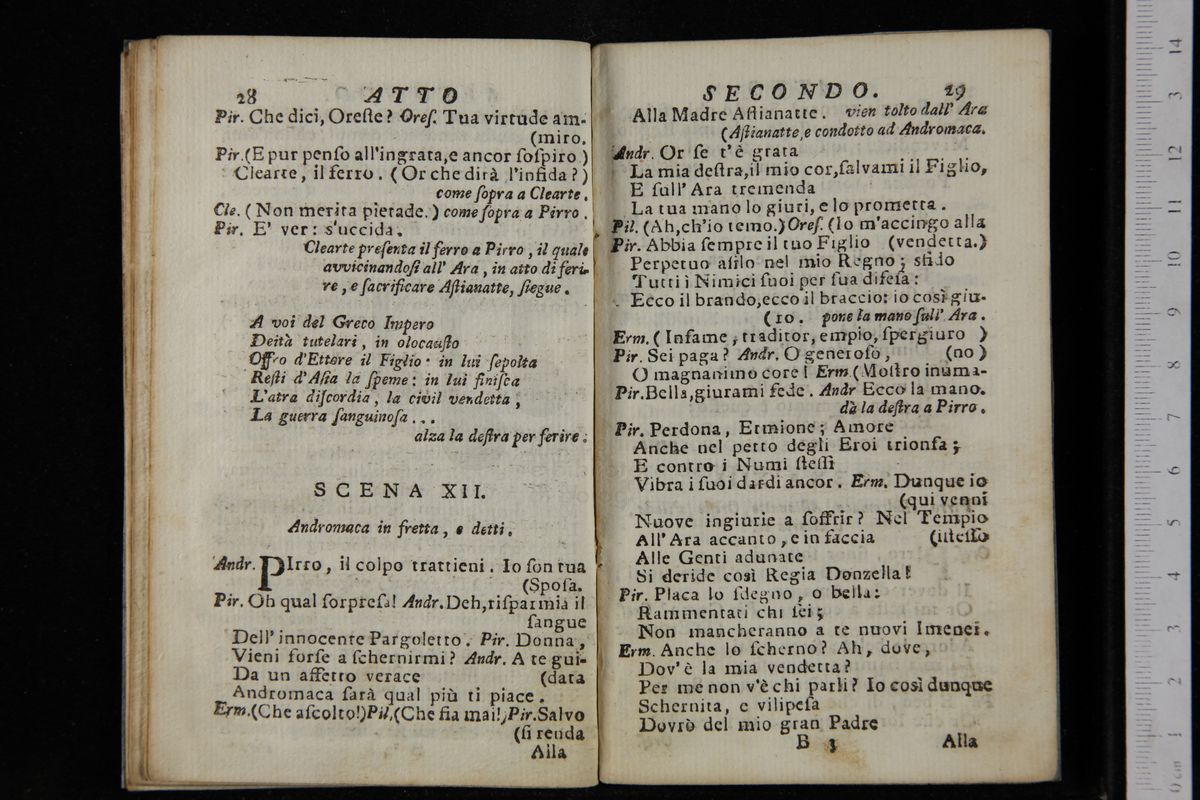 28 ATTO
Pir. Che dici, Oreſte? Oreſ. Tua virtude am-
(miro.
Pir.(E pur penſo all'ingrata,e ancor ſoſpiro )
Clearte, il ferro. (Or che dirà l'infida?)
come ſopra a Clearte.
Cle. (Non merita pietade.) come ſopra a Pirro.
Pir. E' ver: s'uccida.
Clearte preſenta il ferro a Pirro, il quale
avvicinandoſi all' Ara, in atto di feri-
re, e ſacrificare Aſtianatte, ſiegue.
A voi del Greco Impero
Deità tutelari, in olocauſto
Offro d'Ettore il Figlio: in lui ſepolta
Reſti d'Aſia la ſpeme: in lui finiſca
L'atra diſcordia, la civil vendetta,
La guerra ſanguinoſa...
alza la deſtra per ferire.
SCENA XII.
Andromaca in fretta, e detti.
Andr. PIrro, il colpo trattieni. Io ſon tua
(Spoſa.
Pir. Oh qual ſorpreſa! Andr.Deh,riſparmia il
ſangue
Dell'innocente Pargoletto. Pir. Donna,
Vieni forſe a ſchernirmi? Andr. A te gui-
Da un affetto verace (data
Andromaca ſarà qual più ti piace.
Erm.(Che aſcolto!)Pil.(Che fia mai!)Pir.Salvo
(ſi renda
Alla
SECONDO. 29
Alla Madre Aſtianatte. vien tolto dall' Ara
(Aſtianatte,e condotto ad Andromaca.
Andr. Or ſe t'è grata
La mia deſtra,il mio cor,ſalvami il Figlio,
E ſull' Ara tremenda
La tua mano lo giuri, e lo prometta.
Pil. (Ah,ch'io temo.)Oreſ. (Io m'accingo alla
Pir. Abbia ſempre il tuo Figlio (vendetta.)
Perpetuo aſilo nel mio Regno; sfido
Tutti i Nimici ſuoi per ſua difeſa:
Ecco il brando,ecco il braccio: io così giu-
(ro. pone la mano ſull' Ara.
Erm. (Infame, traditor, empio, ſpergiuro )
Pir. Sei paga? Andr. O generoſo, (no)
O magnanimo core! Erm.(Moſtro inuma-
Pir.Bella,giurami fede. Andr Ecco la mano.
dà la deſtra a Pirro.
Pir. Perdona, Ermione; Amore
Anche nel petto degli Eroi trionfa;
E contro i Numi ſteſſi
Vibra i ſuoi dardi ancor. Erm. Dunque io
(qui venni
Nuove ingiurie a ſoffrir? Nel Tempio
All' Ara accanto, e in faccia (iſteſſo
Alle Genti adunate
Si deride così Regia Donzella!
Pir. Placa lo ſdegno, o bella:
Rammentati chi ſei;
Non mancheranno a te nuovi Imenei.
Erm. Anche lo ſcherno? Ah, dove,
Dov'è la mia vendetta?
Per me non v'è chi parli? Io così dunque
Schernita, e vilipeſa
Dovrò del mio gran Padre
B 3 Alla